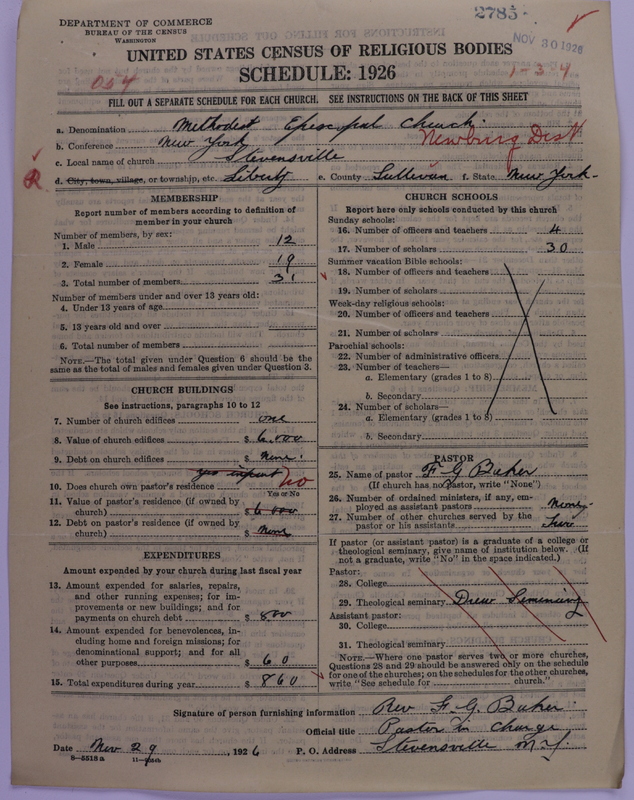 DEPARTMENT OF COMMERCE
BUREAU OF THE CENSUS
WASHINGTON
2785
NOV 30 1926
UNITED STATES CENSUS OF RELIGIOUS BODIES
SCHEDULE: 1926
054
1-34
FILL OUT A SEPARATE SCHEDULE FOR EACH CHURCH. SEE INSTRUCTIONS ON THE BACK OF THIS SHEET
a. Denomination Methodist Episcopal Church.
b. Conference New York Newburg Dist
c. Local name of church Stevensville
d. City, town, village, or township, etc. Liberty e. County Sullivan f. State New York
MEMBERSHIP
Report number of members according to definition of member in your church
Number of members, by sex:
1. Male 12
2. Female 19
3. Total number of members 31
Number of members under and over 13 years old:
4. Under 13 years of age
5. 13 years old and over
6. Total number of members
NOTE.—The total given under Question 6 should be
same as the total of males and females given under Question 3.
CHURCH BUILDINGS
See instructions, paragraphs 10 to 12
7. Number of church edifices one
8. Value of church edifices $ 6,000
9. Debt on church edifices $ None
yes in part No
10. Does church own pastor's residence
Yes or No
11. Value of pastor's residence (if owned by
church) $ 6000
12. Debt on pastor's residence (if owned by
church) $ None
EXPENDITURES
Amount expended by your church during last fiscal year
13. Amount expended for salaries, repairs,
and other running expenses; for im-
provements or new buildings; and for
payments on church debt $ 800
14. Amount expended for benevolences, in-
cluding home and foreign missions; for
denominational support; and for all
other purposes $ 60
15. Total expenditures during year $ 860
CHURCH SCHOOLS
Report here only schools conducted by this church
Sunday schools:
16. Number of officers and teachers 4
17. Number of scholars 30
Summer vacation Bible schools:
18. Number of officers and teachers
19. Number of scholars
Week-day religious schools:
20. Number of officers and teachers
21. Number of scholars
Parochial schools:
22. Number of administrative officers
23. Number of teachers—
a. Elementary (grades 1 to 8)
b. Secondary
24. Number of scholars—
a. Elementary (grades 1 to 8)
b. Secondary
PASTOR
25. Name of pastor F. G. Baker
(If church has no pastor, write "None")
26. Number of ordained ministers, if any, em-
ployed as assistant pastors
27. Number of other churches served by the
pastor or his assistants
If pastor (or assistant pastor) is a graduate of a college or
theological seminary, give name of institution below. (If
not a graduate, write "No" in the space indicated.)
Pastor:
28. College
29. Theological seminary Drew Seminary
Assistant pastor:
30. College
31. Theological seminary
NOTE.—Where one pastor serves two or more churches,
Questions 28 and 29 should be answered only on the schedule
for one of the churches; on the schedules for the other churches,
write "See schedule for church."
Signature of person furnishing information Rev F. G. Baker
Official title Pastor in Charge
Date Nov 29, 1926 P. O. Address Stevensville N.Y.
8—5518a